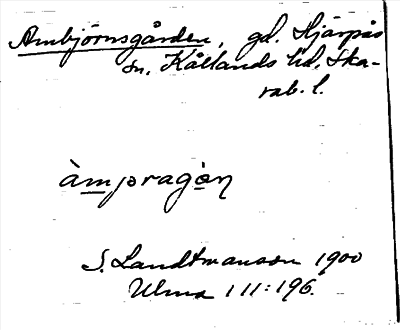 Ambjörnsgården, gd. Hjärpås
sn, Kållands hd, Ska-
rab. l.
àmpragàn
S. Landtmanson 1900
Ulma 111:196.